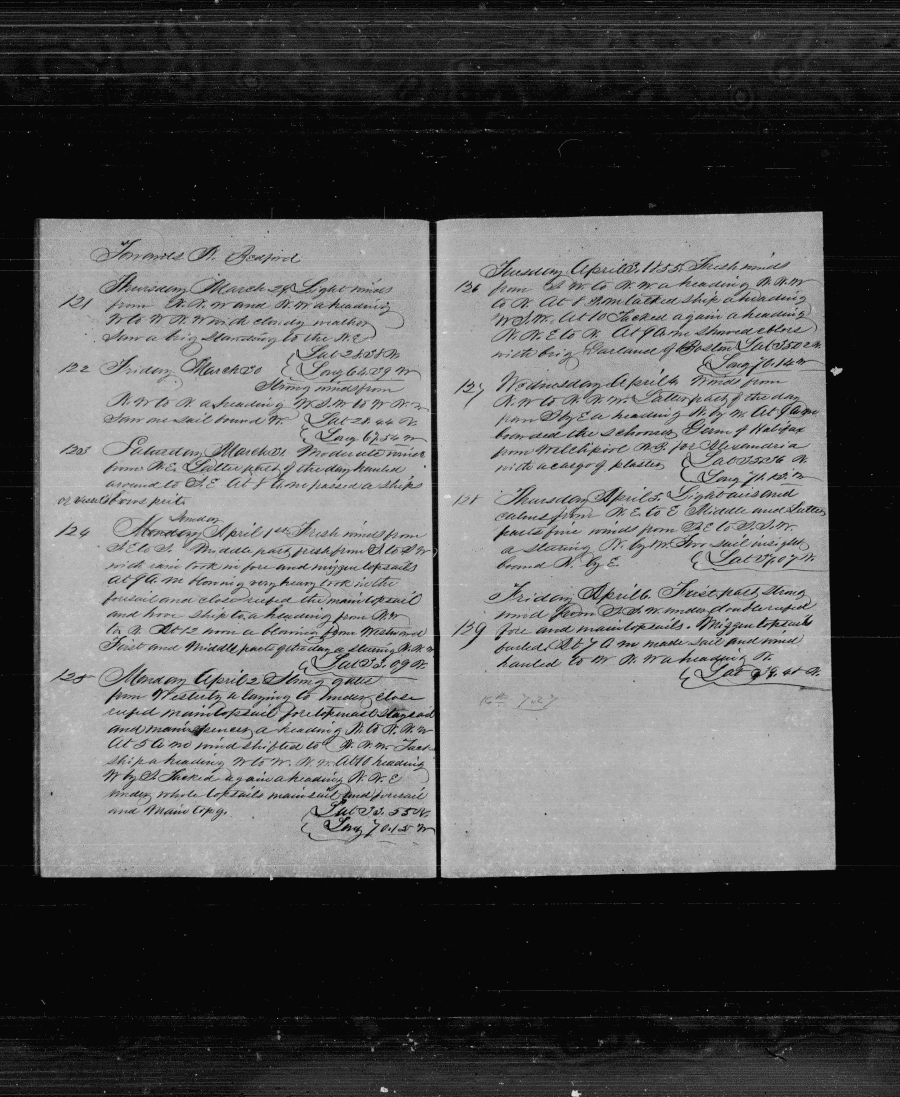 Towards N. Bedford
Thursday March 29 Light winds
121 from N. N. W and N. W a heading
W to W N. W with cloudy weather
Saw a brig standing to the N. E
Lat 28.38 N.
122 Friday March 30 Long 64.39 W
Strong winds from
N. W to N. a heading W. S. W to W N. W
Saw one sail bound W. Lat 28.44 N.
Long 67.54 W
123 Saturday March 31 Moderate winds
from N. E. Latter part of the day hauled
around to S. E At 8 A m passed a ships
or vessels bowsprit
Sunday
124 Monday April 1st Fresh winds from
S. E to S. Middle part fresh from S to S W
with rain took in fore and mizzen topsails
At 9 A m blowing very heavy took in the
foresail and close reefed the main topsail
and hove ship to a heading from N. W
to N. At 12 noon a blowing from Westward
First and Middle parts of the day a steering N. N. W
Lat 33.09 N.
125 Monday April 2 Strong gales
from Westerly a laying to under close
reefed main topsail fore topmast staysail
and main spencer a heading N. to N. N. W
At 5 A m wind shifted to N. N. W. Tack
ship a heading W to W. N. W. At 10 heading
W by S Tacked again a heading N. N. E
under whole topsails mainsail and foresail
and Main topg.
Lat 33.55 N.
Long 70.15 W
Tuesday April 3. 1855. Fresh winds
126 from S W. to N. W a heading N. N. W
to N. At 8 P. m tacked ship a heading
W. S. W. At 10 Tacked again a heading
N. N. E to N. At 9 A m showed colors
with brig Garland of Boston Lat 35.02 N.
Long 70.14 W
127 Wednesday April 4 Winds from
N. W to N. N. W. Latter part of the day
from S by E a heading N. by W. At 9 A m
boarded the schooner Germ of Halifax
from Welchpool N. B. for Alexandria
with a cargo of plaster Lat 35.56 N
Long 71.12 W
128 Thursday April 5. Light airs and
calms from N. E to E Middle and Latter
parts fine winds from S. E to S. S. W.
a steering N. by W. Two sail in sight
bound N. by E. Lat 37.07 N.
Friday April 6 First part strong
129 wind from S. S. W. under double reefed
fore and main topsails. Mizzen topsail
furled. At 7 A m made sail and wind
hauled to W N. W a heading N.
Lat 39.41 N.